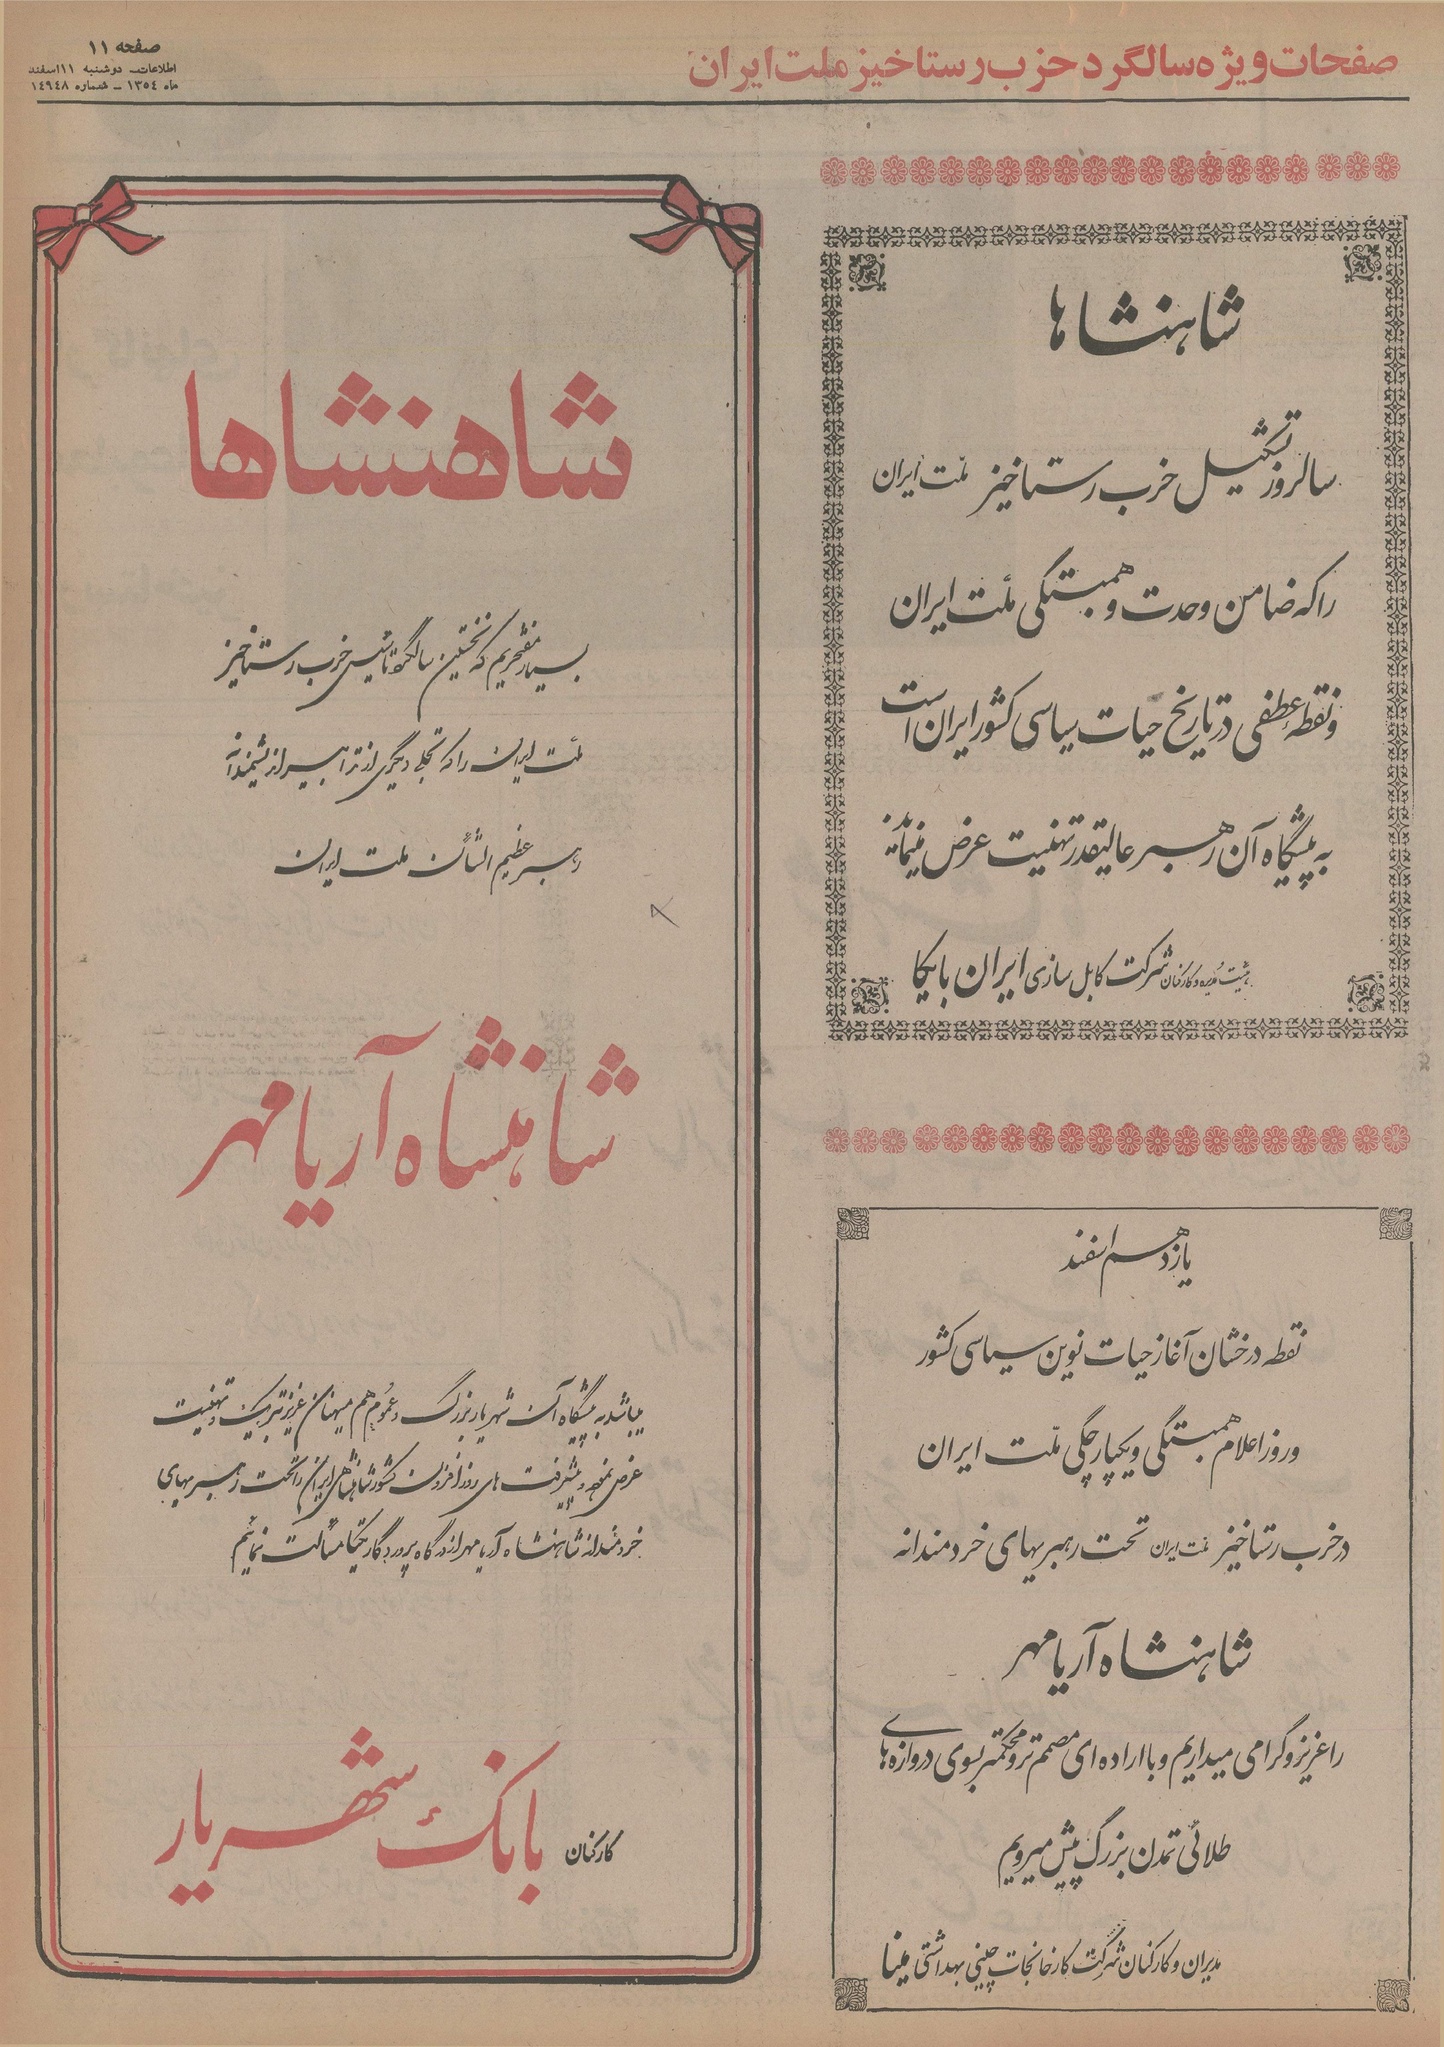 صفحات ویژه سالگرد حزب رستاخیز ملت ایران
صفحه ۱۱
اطلاعات دوشنبه ۱۱ اسفند
ماه ۱۳۵۴ - شماره ۱۴۹۴۸
شاهنشاها
سالروز تشکیل حزب رستاخیز ملت ایران
را که ضامن وحدت و همبستگی ملت ایران
و نقطه عطفی در تاریخ حیات سیاسی کشور ایران است
به پیشگاه آن رهبر عالیقدر تهنیت عرض مینماید.
هیئت مدیره و کارکنان شرکت کابل سازی ایران با یکا
یازدهم اسفند
نقطه درخشان آغاز حیات نوین سیاسی کشور
و روز اعلام همبستگی و یکپارچگی ملت ایران
در حزب رستاخیز ملت ایران تحت رهبریهای خردمندانه
شاهنشاه آریامهر
را عزیز و گرامی میداریم و با اراده ای مصمم تر و محکمتر بسوی دروازه های
طلائی تمدن بزرگ پیش میرویم
مدیران و کارکنان شرکت کارخانجات چینی بهداشتی مینا
شاهنشاها
بسیار مفتخریم که نخستین سالگرد تاسیس حزب رستاخیز
ملت ایران را که تجلی دیگری از تدابیر اندیشمندانه
رهبر عظیم الشأن ملت ایران
شاهنشاه آریامهر
میباشد به پیشگاه آن شهریار بزرگ و عموم هم میهنان عزیز تبریک و تهنیت
عرض نموده و پیشرفت های روزافزون کشور شاهنشاهی ایران را تحت رهبریهای
خردمندانه شاهنشاه آریامهر از درگاه پروردگار یکتا مسألت نمائیم
کارکنان بانک شهریار